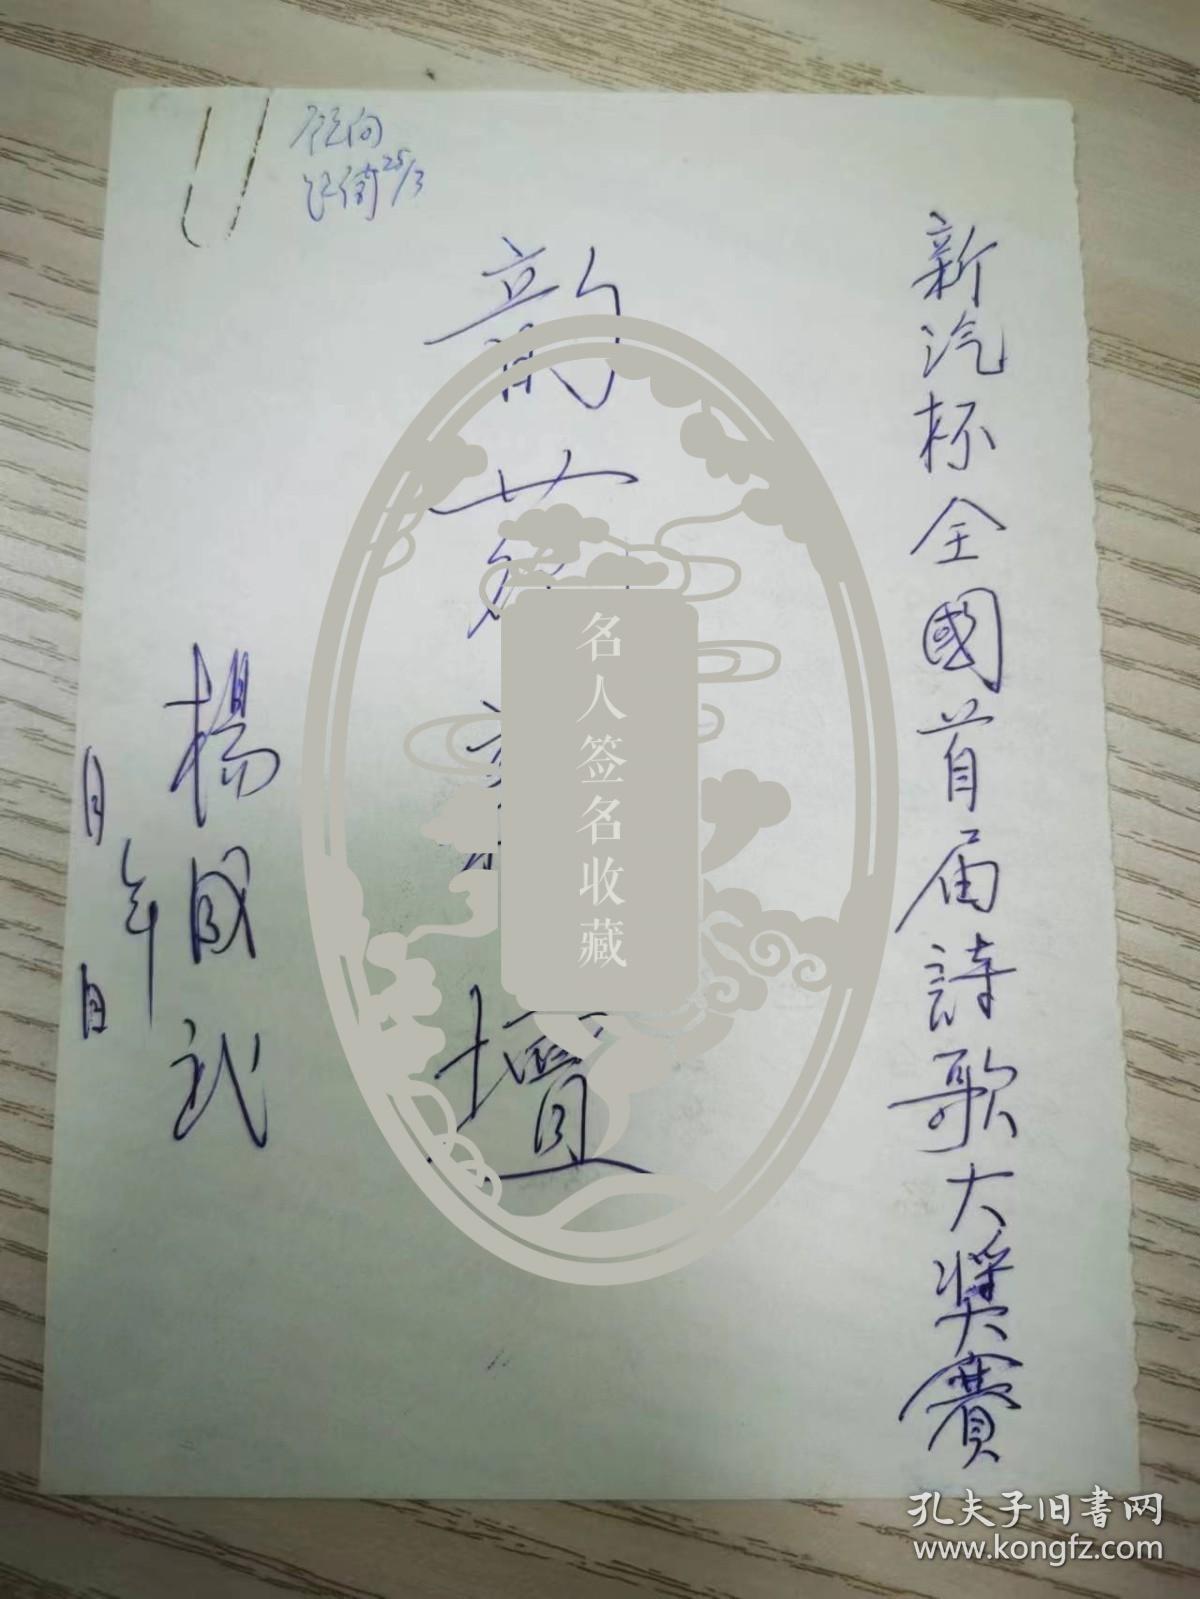 新汽杯全國首届詩歌大獎賽
韵
壇
楊国武
年
月
日
25/3
名人签名收藏
孔夫子旧书网
www.kongfz.com